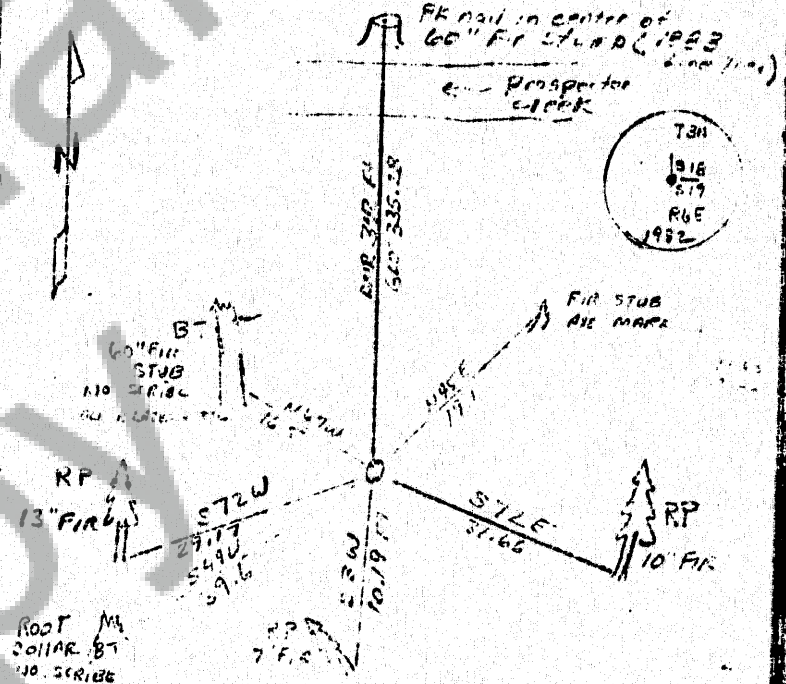 PK nail in centre of
60" Fir Stump (1983
← Prospector
creek
N
T3N
S18
S19
R6E
1982
335.28
FIR STUB
AXE MARK
N45E
19.1
B
60" FIR
STUB
NO SCRIBE
N67W
RP
13" FIR
S72W
29.17
S49W
59.6
S2W
10.19 FT
S72E
31.66
RP
10" FIR
ROOT
COLLAR BT
NO SCRIBE
RP
7" FIR